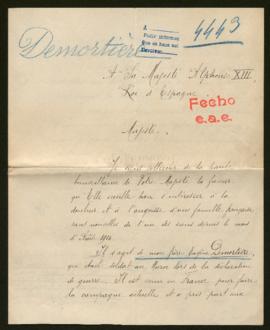 Demortière
A
Pedir informes
que se hace set
Devolver
4443
A Sa Majesté Alphonse XIII
Roi d'Espagne.
Fecho
e.a.e.
Majesté.
Je viens solliciter de la haute
bienveillance de Votre Majesté la faveur
qu'Elle veuille bien s'intéresser à la
douleur et à l'angoisse d'une famille française
sans nouvelles de l'un des siens depuis le mois
d'Août 1914.
Il s'agit de mon frère Demortière
qui était soldat au Maroc lors de la déclaration
de guerre. Il est venu en France pour faire
la campagne actuelle et a pris part aux